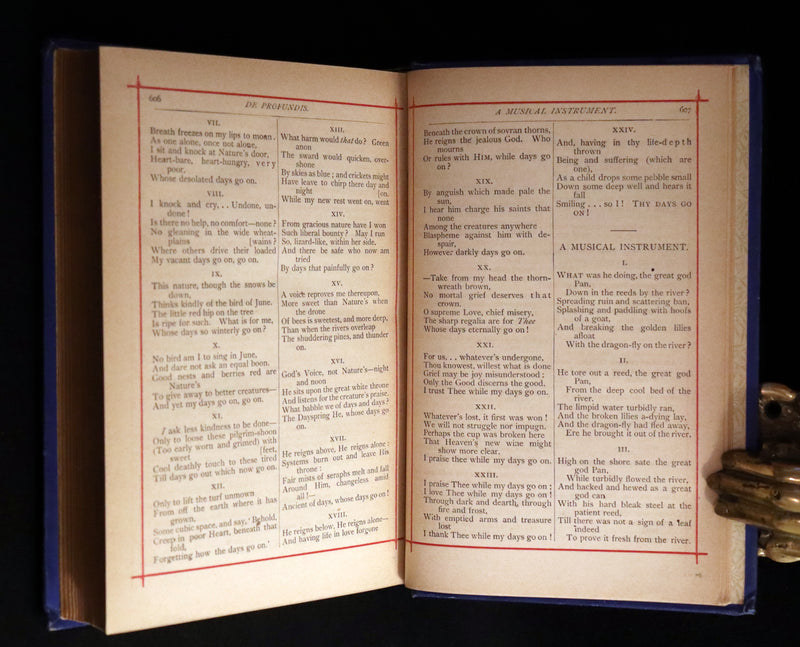 606
DE PROFUNDIS.
VII.
Breath freezes on my lips to moan.
As one alone, once not alone,
I sit and knock at Nature's door,
Heart-bare, heart-hungry, very
poor,
Whose desolated days go on.
VIII.
I knock and cry, . . Undone, un-
done!
Is there no help, no comfort—none?
No gleaning in the wide wheat-
plains [wains?
Where others drive their loaded
My vacant days go on, go on.
IX.
This nature, though the snows be
down,
Thinks kindly of the bird of June.
The little red hip on the tree
Is ripe for such. What is for me,
Whose days so winterly go on?
X.
No bird am I to sing in June,
And dare not ask an equal boon.
Good nests and berries red are
Nature's
To give away to better creatures—
And yet my days go on, go on.
XI.
I ask less kindness to be done—
Only to loose these pilgrim-shoon
(Too early worn and grimed) with
sweet [feet,
Cool deathly touch to these tired
Till days go out which now go on.
XII.
Only to lift the turf unmown
From off the earth where it has
grown,
Some cubic space, and say, 'Behold,
Creep in poor Heart, beneath that
fold,
Forgetting how the days go on.'
XIII.
What harm would that do? Green
anon
The sward would quicken, over-
shone
By skies as blue; and crickets might
Have leave to chirp there day and
night [on.
While my new rest went on, went
XIV.
From gracious nature have I won
Such liberal bounty? May I run
So, lizard-like, within her side,
And there be safe who now am
tried
By days that painfully go on?
XV.
A voice reproves me thereupon,
More sweet than Nature's when
the drone
Of bees is sweetest, and more deep,
Than when the rivers overleap
The shuddering pines, and thunder
on.
XVI.
God's Voice, not Nature's—night
and noon
He sits upon the great white throne
And listens for the creature's praise.
What babble we of days and days?
The Dayspring He, whose days go
on.
XVII.
He reigns above, He reigns alone:
Systems burn out and leave His
throne:
Fair mists of seraphs melt and fall
Around Him, changeless amid
all!—
Ancient of days, whose days go on!
XVIII.
He reigns below, He reigns alone—
And having life in love forgone
A MUSICAL INSTRUMENT.
607
Beneath the crown of sovran thorns,
He reigns the jealous God. Who
mourns
Or rules with HIM, while days go
on?
XIX.
By anguish which made pale the
sun,
I hear him charge his saints that
none
Among the creatures anywhere
Blaspheme against him with de-
spair,
However darkly days go on.
XX.
—Take from my head the thorn-
wreath brown,
No mortal grief deserves that
crown.
O supreme Love, chief misery,
The sharp regalia are for Thee
Whose days eternally go on!
XXI.
For us, . . whatever's undergone,
Thou knowest, willest what is done
Grief may be joy misunderstood:
Only the Good discerns the good.
I trust Thee while my days go on.
XXII.
Whatever's lost, it first was won!
We will not struggle nor impugn.
Perhaps the cup was broken here
That Heaven's new wine might
show more clear.
I praise thee while my days go on.
XXIII.
I praise Thee while my days go on;
I love Thee while my days go on!
Through dark and dearth, through
fire and frost,
With emptied arms and treasure
lost
I thank Thee while my days go on!
XXIV.
And, having in thy life-depth
thrown
Being and suffering (which are
one),
As a child drops some pebble small
Down some deep well and hears it
fall
Smiling . . . so I! THY DAYS GO
ON!
A MUSICAL INSTRUMENT.
I.
WHAT was he doing, the great god
Pan,
Down in the reeds by the river?
Spreading ruin and scattering ban,
Splashing and paddling with hoofs
of a goat,
And breaking the golden lilies
afloat
With the dragon-fly on the river?
II.
He tore out a reed, the great god
Pan,
From the deep cool bed of the
river.
The limpid water turbidly ran,
And the broken lilies a-dying lay,
And the dragon-fly had fled away,
Ere he brought it out of the river.
III.
High on the shore sate the great
god Pan,
While turbidly flowed the river,
And hacked and hewed as a great
god can
With his hard bleak steel at the
patient reed,
Till there was not a sign of a leaf
indeed
To prove it fresh from the river.